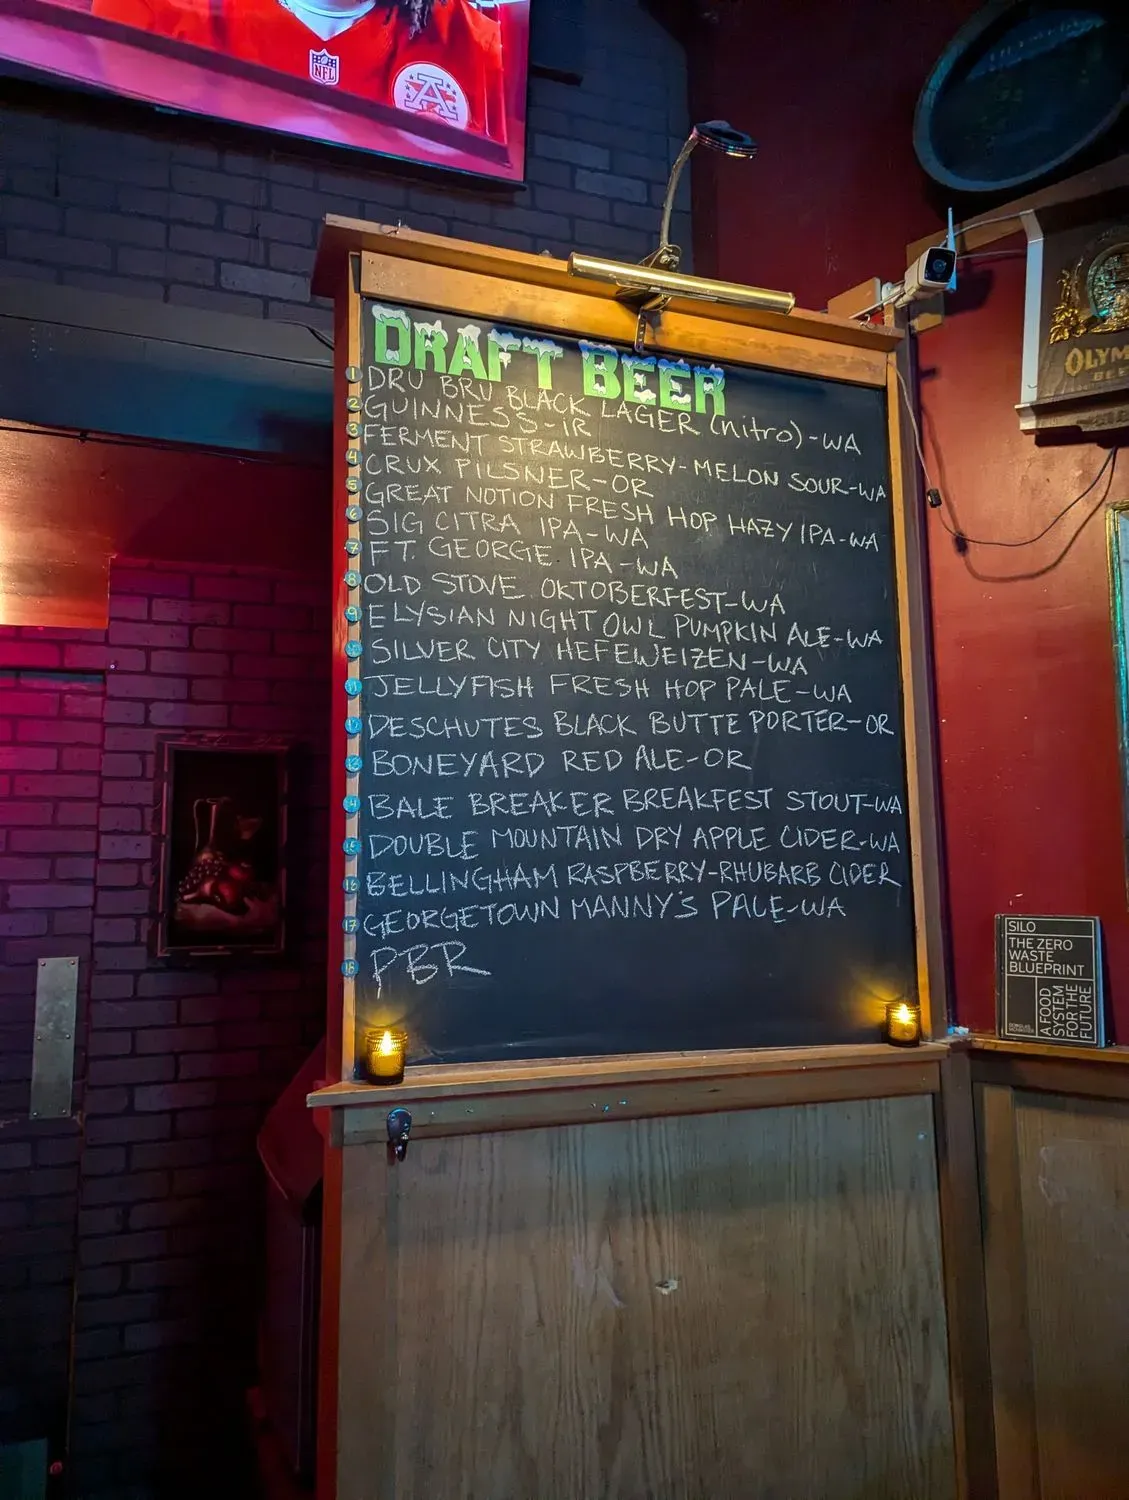 NFL
A
DRAFT BEER
1 DRU BRU BLACK LAGER (nitro)-WA
2 GUINNESS-IR
3 FERMENT STRAWBERRY-MELON SOUR-WA
4 CRUX PILSNER-OR
5 GREAT NOTION FRESH HOP HAZY IPA-WA
6 SIG CITRA IPA-WA
7 FT. GEORGE IPA-WA
8 OLD STOVE OKTOBERFEST-WA
9 ELYSIAN NIGHT OWL PUMPKIN ALE-WA
10 SILVER CITY HEFEWEIZEN-WA
11 JELLYFISH FRESH HOP PALE-WA
12 DESCHUTES BLACK BUTTE PORTER-OR
13 BONEYARD RED ALE-OR
14 BALE BREAKER BREAKFEST STOUT-WA
15 DOUBLE MOUNTAIN DRY APPLE CIDER-WA
16 BELLINGHAM RASPBERRY-RHUBARB CIDER
17 GEORGETOWN MANNY'S PALE-WA
18 PBR
OLYM
BEE
SILO
THE ZERO
WASTE
BLUEPRINT
A FOOD
SYSTEM
FOR THE
FUTURE